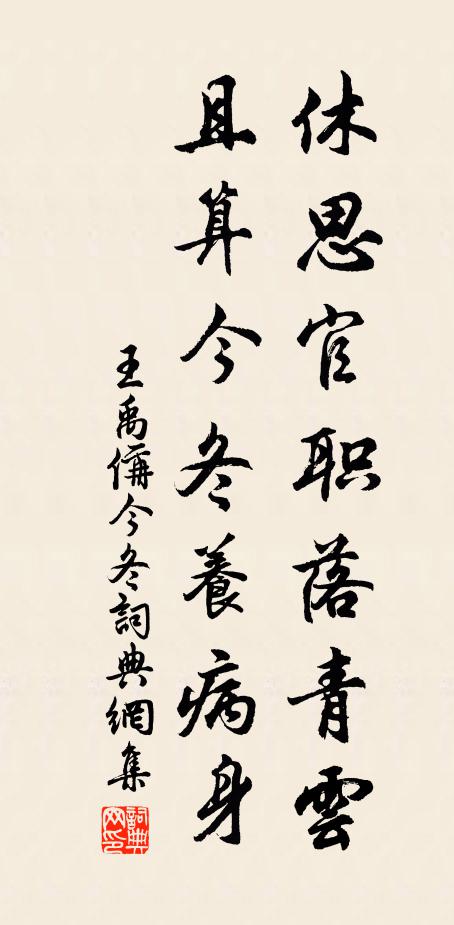 休思官职落青雲
且算今冬養病身
王禹偁今冬詞典網集
詞典网印